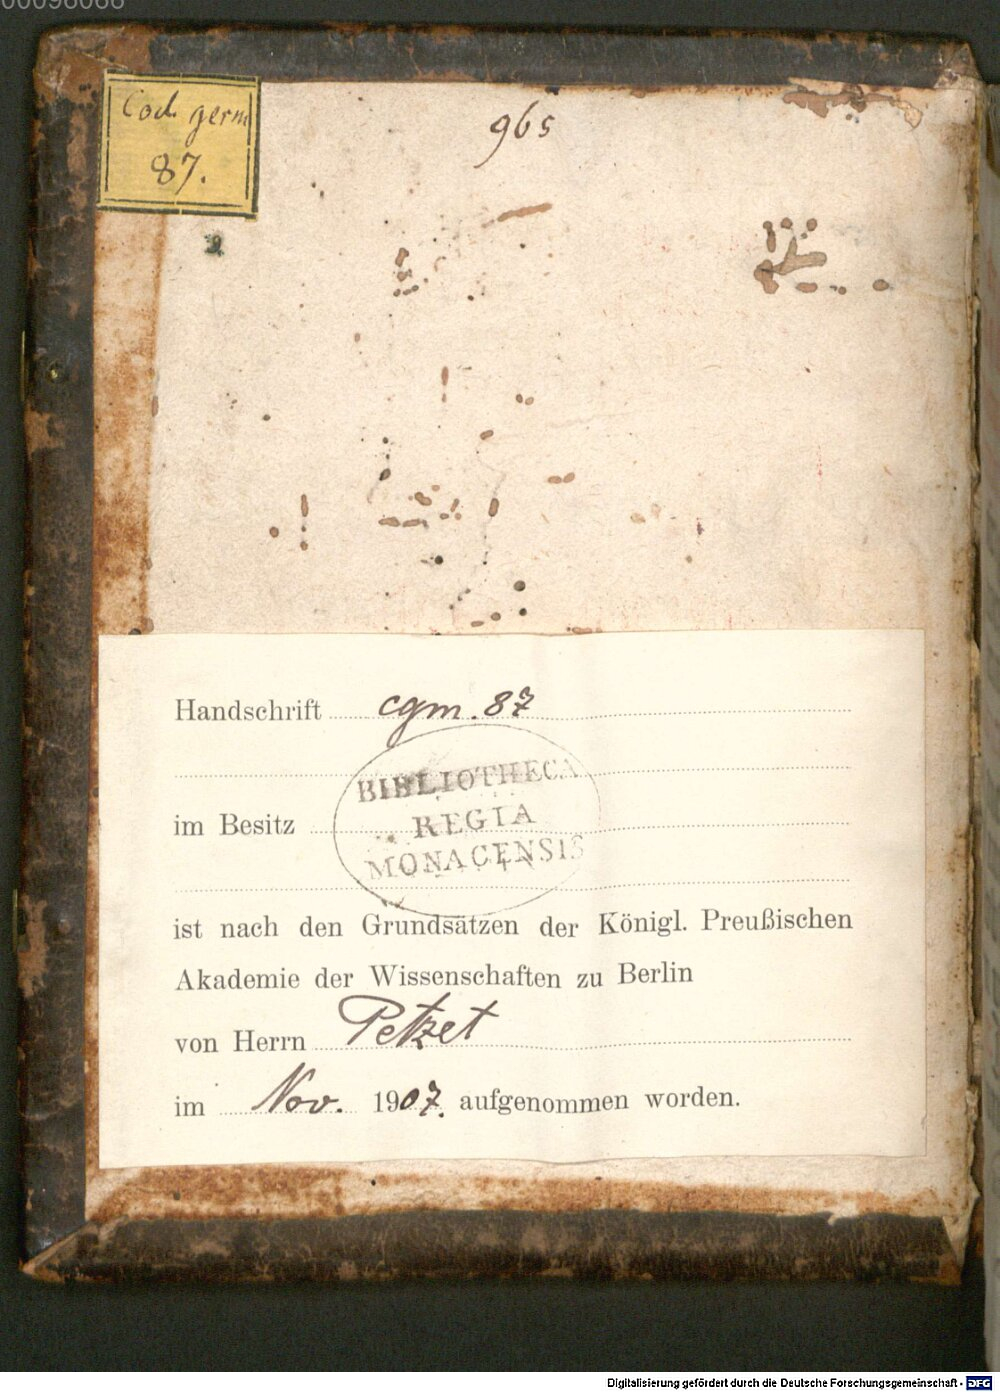 Cod. germ
87.
965
Handschrift cgm. 87
BIBLIOTHECA
REGIA
MONACENSIS
im Besitz
ist nach den Grundsätzen der Königl. Preußischen
Akademie der Wissenschaften zu Berlin
von Herrn Petzet
im Nov. 1907. aufgenommen worden.
Digitalisierung gefördert durch die Deutsche Forschungsgemeinschaft - DFG